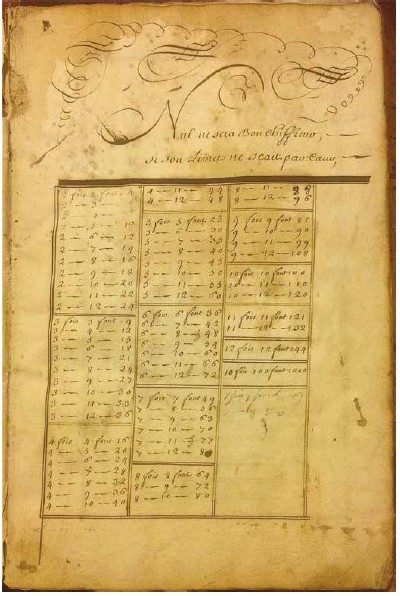 Nul ne sera Bon Chiffreur, —
Si son Livret ne Sçait par Cœur, —
2 fois 2 font 4
2 — 3 —
2 — 4 —
2 — 5 — 10
2 — 6 — 12
2 — 7 — 14
2 — 8 — 16
2 — 9 — 18
2 — 10 — 20
2 — 11 — 22
2 — 12 — 24
3 fois 3 font 9
3 — 4 — 12
3 — 5 — 15
3 — 6 — 18
3 — 7 — 21
3 — 8 — 24
3 — 9 — 27
3 — 10 — 30
3 — 11 — 33
3 — 12 — 36
4 fois 4 font 16
4 — 5 — 20
4 — 6 — 24
4 — 7 — 28
4 — 8 — 32
4 — 9 — 36
4 — 10 — 40
4 — 11 — 44
4 — 12 — 48
5 fois 5 font 25
5 — 6 — 30
5 — 7 — 35
5 — 8 — 40
5 — 9 — 45
5 — 10 — 50
5 — 11 — 55
5 — 12 — 60
6 fois 6 font 36
6 — 7 — 42
6 — 8 — 48
6 — 9 — 54
6 — 10 — 60
6 — 11 — 66
6 — 12 — 72
7 fois 7 font 49
7 — 8 — 56
7 — 9 — 63
7 — 10 — 70
7 — 11 — 77
7 — 12 — 8
8 fois 8 font 64
8 — 9 — 72
8 — 10 — 80
8 — 11 — 88
8 — 12 — 96
9 fois 9 font 81
9 — 10 — 90
9 — 11 — 99
9 — 12 — 108
10 fois 10 font 100
10 — 11 — 110
10 — 12 — 120
11 fois 11 font 121
11 — 12 — 132
12 fois 12 font 144
10 fois 100 font 1000